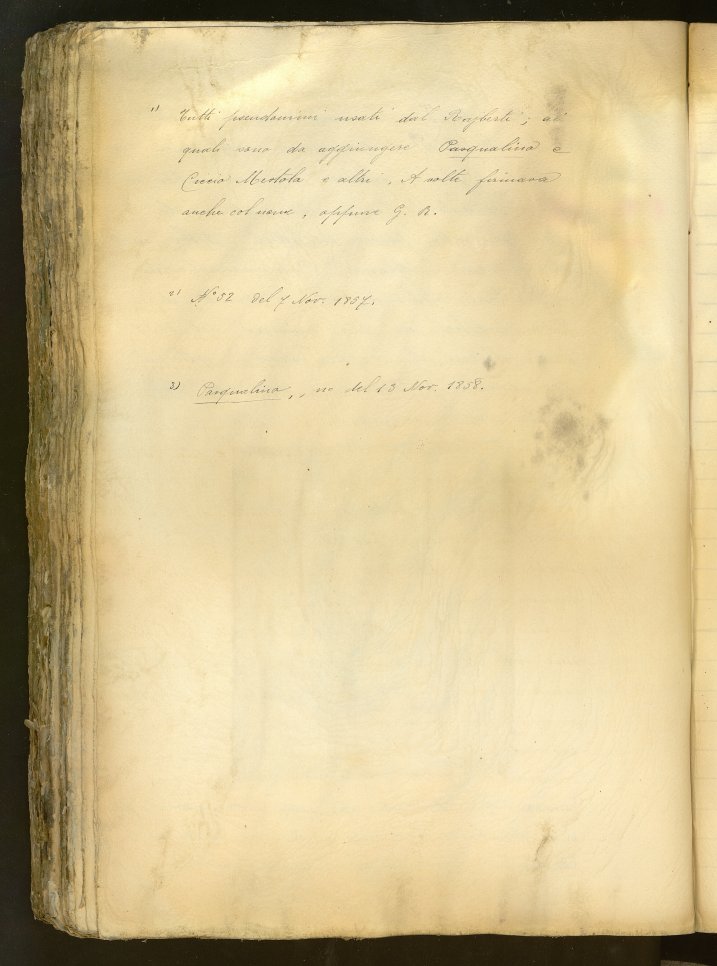 1) Tutti pseudonimi usati dal Righetti; ai
quali sono da aggiungere Pasqualino e
Ciccio Mestola e altri. A volte firmava
anche col nome, oppure G. R.
2) N° 52 del 7 Nov. 1857.
3) Pasqualino, del 13 Nov. 1858.